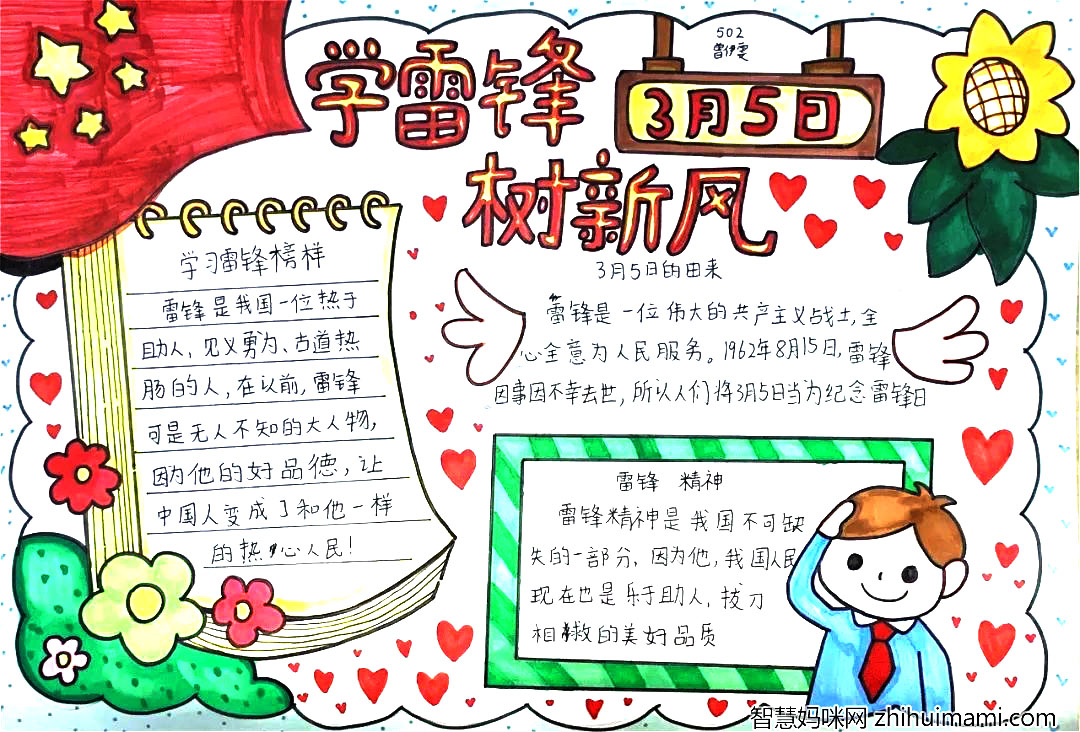 学雷锋
树新风
502
曾伊雯
3月5日
学习雷锋榜样
雷锋是我国一位热于
助人,见义勇为、古道热
肠的人,在以前,雷锋
可是无人不知的大人物,
因为他的好品德,让
中国人变成了和他一样
的热心人民!
3月5日的由来
雷锋是一位伟大的共产主义战士,全
心全意为人民服务。1962年8月15日,雷锋
因事因不幸去世,所以人们将3月5日当为纪念雷锋日
雷锋 精神
雷锋精神是我国不可缺
失的一部分,因为他,我国人民
现在也是乐于助人,拔刀
相救的美好品质
智慧妈咪网 zhihuimami.com